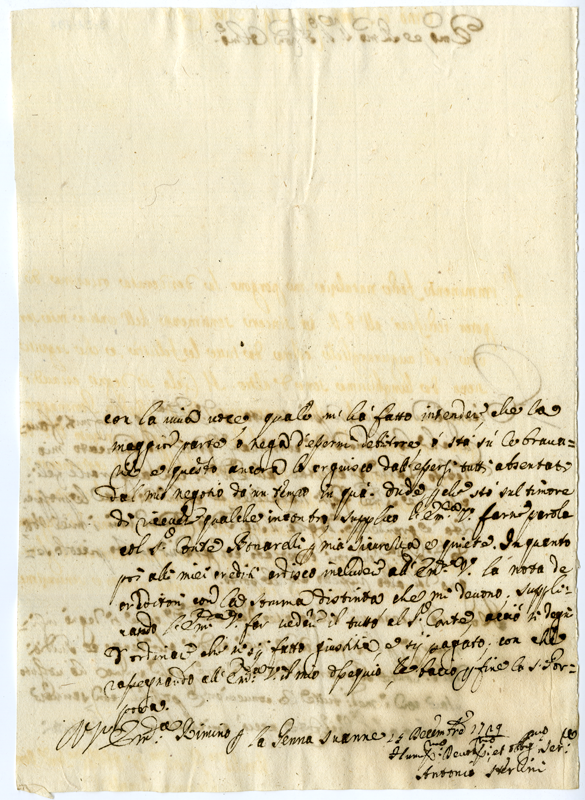 con la mia voce quale mi hà fatto intender, che la
maggior parte ò nega d'essermi debitore ò stà sù le brava-
te e questo ancora lo arguisco dall'essersi tutti absentati
dal mio negotio da un tempo in quà. Onde che stò sul timore
di ricever qualche incontro supplico l'Em.za V. farne parola
col S.r Conte Bonarelli p mia sicurezza e quiete. In quanto
poi alli miei crediti ardisco includer all'Em.za V. la nota de
creditori con la somma distinta che mi devono, suppli-
cando l'Em.za V. far veder il tutto al S.r Conte, acciò si degni
d'ordinar, che mi sij fatto giustitia e sij pagato, con che
rassegnando all'Em.za V. il mio ossequio, le bacio p fine la S. Por-
pora.
Rimino p la Penna 14 Decembre
Hum.mo Devot.mo et Obblig.mo Ser.re
Antonio